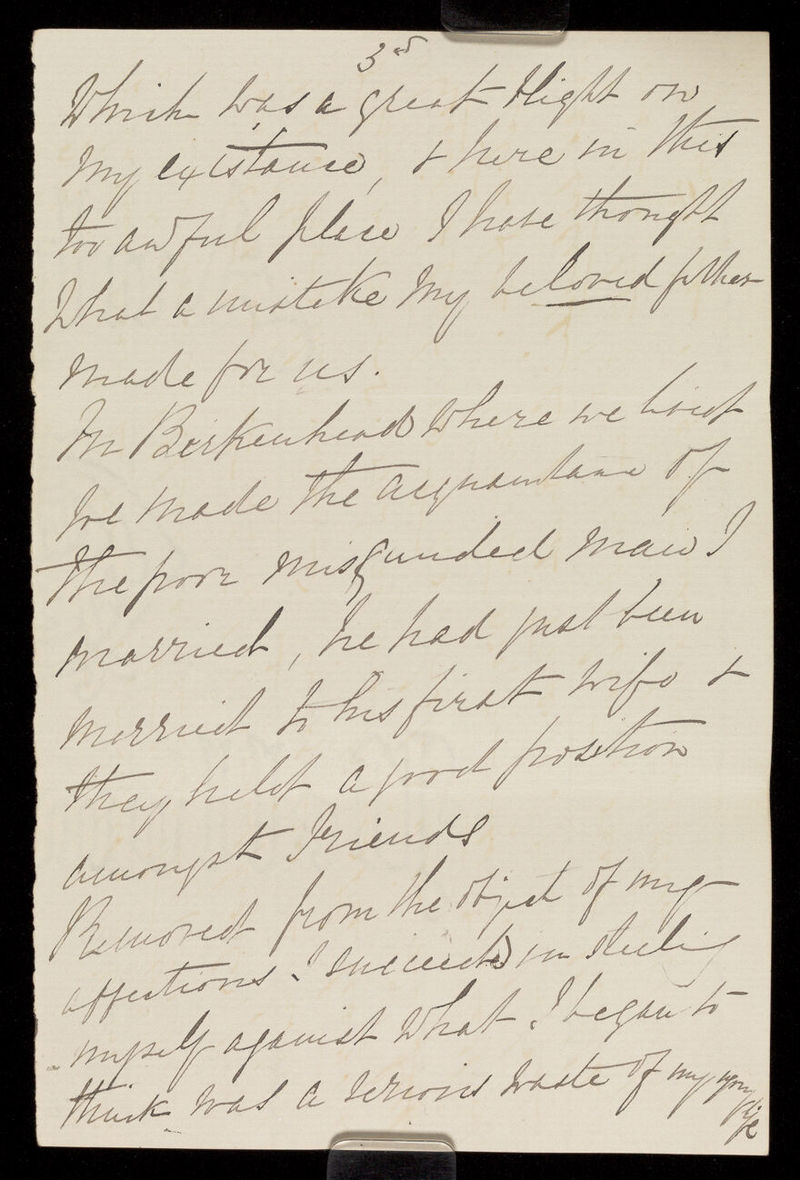 3rd
Which was a great blight on
my existance, & here in this
too awful place I have thought
What a mistake my beloved father
made for us.
In Berkenhead where we lived
we made the acquantance of
the poor misguided man I
married, he had just been
married to his first wife &
they held a good position
amongst friends
Removed from the object of my
affections I succeeded in steeling
myself against what I began to
think was a serious waste of my young life